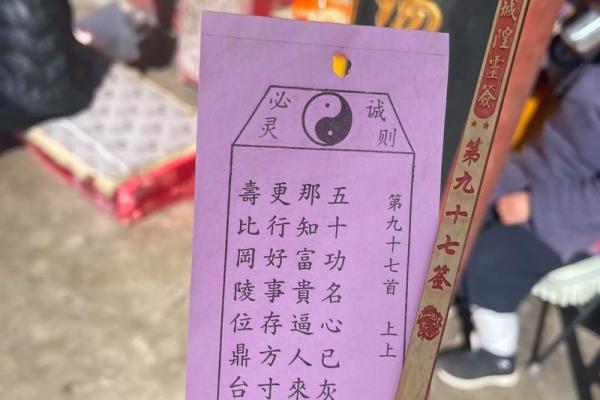 诚则
必灵
第九十七首 上上
五十功名心已灰
那知富貴逼人來
更行好事存方寸
壽比岡陵位鼎台
城隍靈签
第九十七签